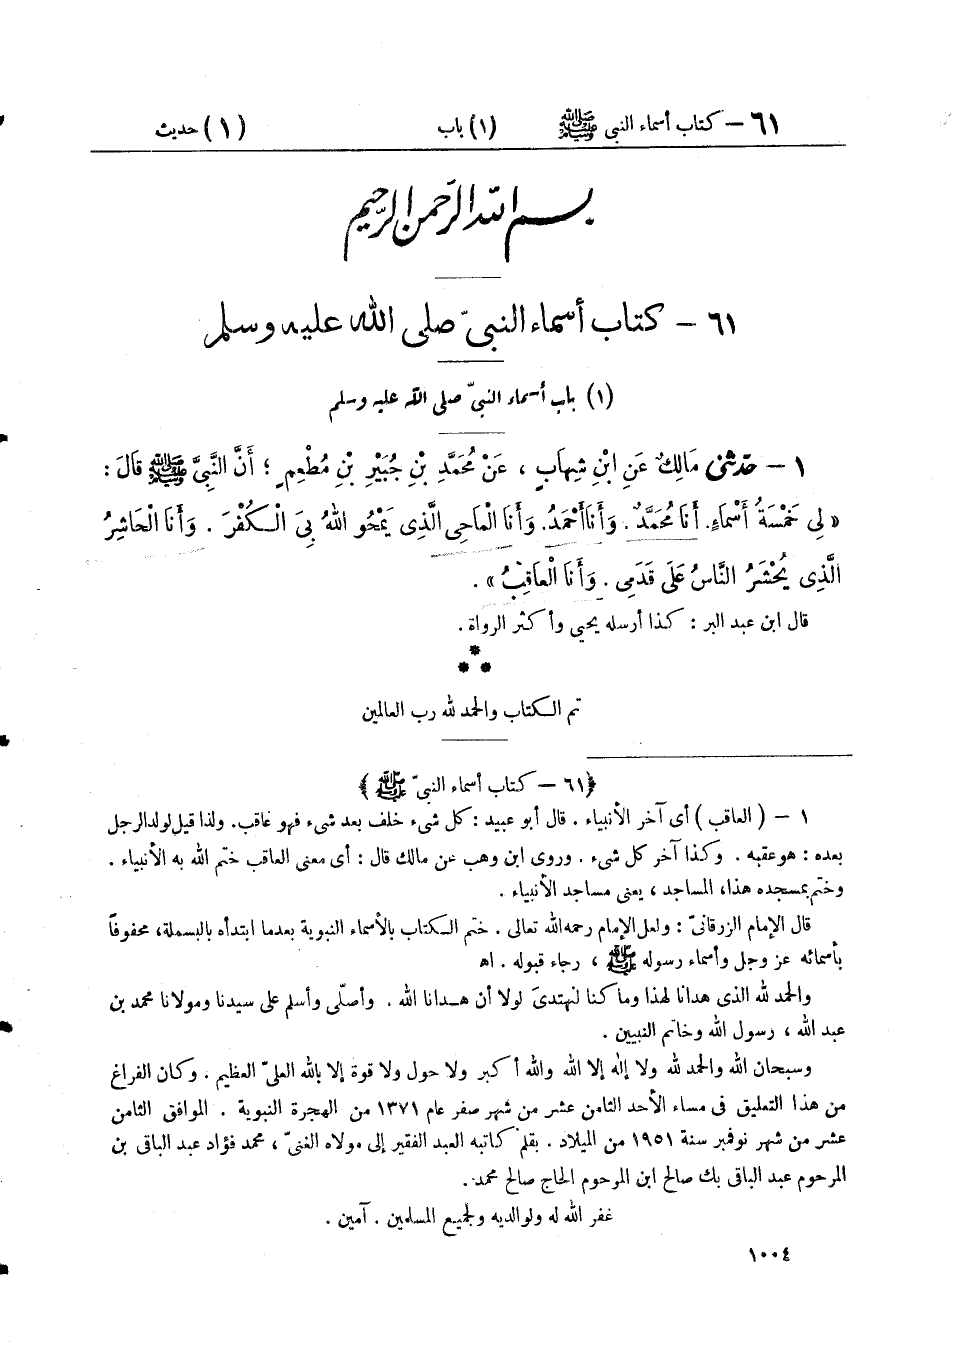 ٦١ – كتاب أسماء النبى ﷺ (١) باب (١) حديث
بسم الله الرحمن الرحيم
٦١ – كتاب أسماء النبىّ صلى الله عليه وسلم
(١) باب أسماء النبىّ صلى الله عليه وسلم
١ – حَدَّثَنِى مَالِكٌ عَنِ ابْنِ شِهَابٍ ، عَنْ مُحَمَّدِ بْنِ جُبَيْرِ بْنِ مُطْعِمٍ ؛ أَنَّ النَّبِىَّ ﷺ قَالَ :
« لِى خَمْسَةُ أَسْمَاءٍ. أَنَا مُحَمَّدٌ. وَأَنَا أَحْمَدُ. وَأَنَا الْمَاحِى الَّذِى يَمْحُو اللهُ بِىَ الْكُفْرَ . وَأَنَا الْحَاشِرُ
الَّذِى يُحْشَرُ النَّاسُ عَلَى قَدَمِى . وَأَنَا الْعَاقِبُ » .
قال ابن عبد البر : كذا أرسله يحيى وأكثر الرواة .
تم الكتاب والحمد لله رب العالمين
﴿٦١ – كتاب أسماء النبىّ ﷺ﴾
١ – ( العاقب ) أى آخر الأنبياء . قال أبو عبيد : كل شىء خلف بعد شىء فهو عاقب. ولذا قيل لولد الرجل
بعده : هو عقبه . وكذا آخر كل شىء . وروى ابن وهب عن مالك قال : أى معنى العاقب ختم الله به الأنبياء .
وختم بمسجده هذا، المساجد ، يعنى مساجد الأنبياء .
قال الإمام الزرقانىّ : ولعل الإمام رحمه الله تعالى . ختم الكتاب بالأسماء النبوية بعدما ابتدأه بالبسملة، محفوفاً
بأسمائه عز وجل وأسماء رسوله ﷺ ، رجاء قبوله . اه
والحمد لله الذى هدانا لهذا وما كنا لنهتدىَ لولا أن هدانا الله . وأصلّى وأسلم على سيدنا ومولانا محمد بن
عبد الله ، رسول الله وخاتم النبيين .
وسبحان الله والحمد لله ولا إله إلا الله والله أكبر ولا حول ولا قوة إلا بالله العلىّ العظيم . وكان الفراغ
من هذا التعليق فى مساء الأحد الثامن عشر من شهر صفر عام ١٣٧١ من الهجرة النبوية . الموافق الثامن
عشر من شهر نوفمبر سنة ١٩٥١ من الميلاد . بقلم كاتبه العبد الفقير إلى مولاه الغنىّ ، محمد فؤاد عبد الباقى بن
المرحوم عبد الباقى بك صالح ابن المرحوم الحاج صالح محمد.
غفر الله له ولوالديه ولجميع المسلمين . آمين .
١٠٠٤